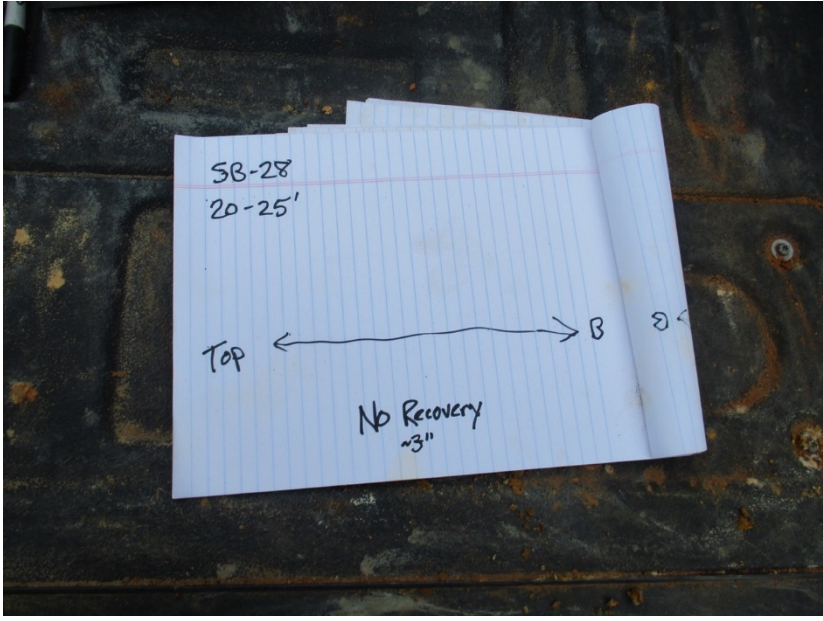 SB-28
20-25'
Top <-> B
No Recovery
~3"